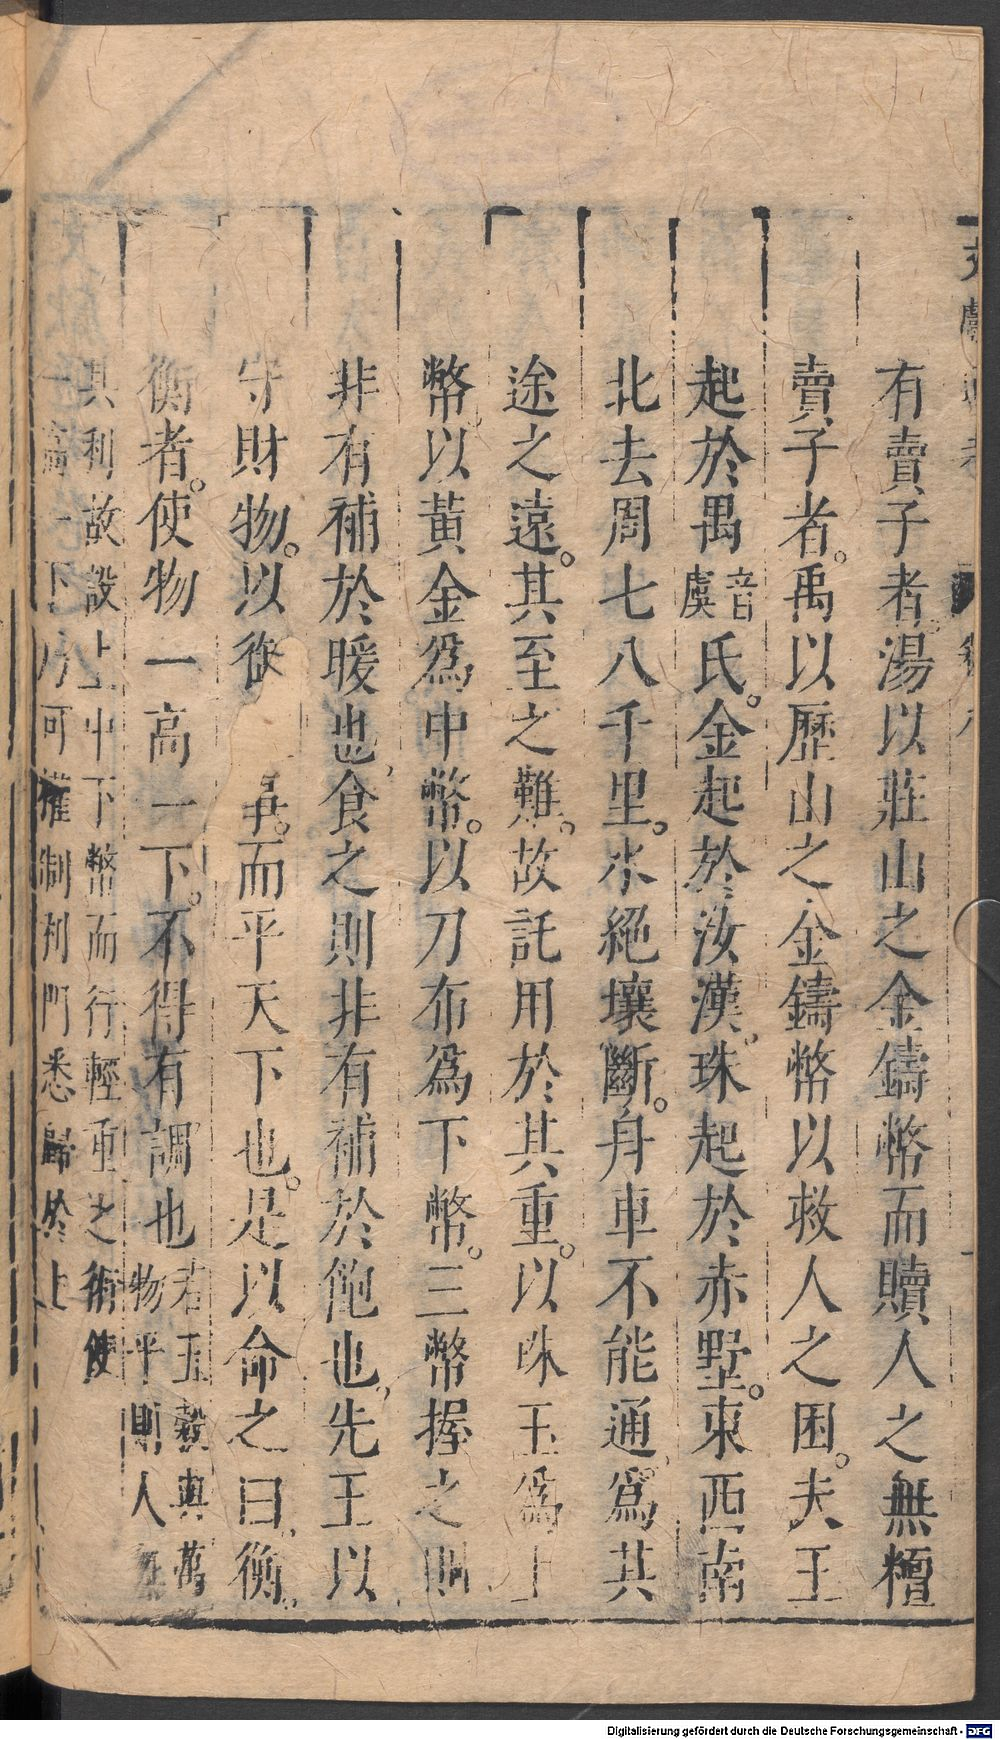 有賣子者湯以莊山之金鑄幣而贖人之無䊤
賣子者。禹以歷山之金鑄幣以救人之困。夫玉
起於禺音虞氏。金起於汝漢、珠起於赤墅。東西南
北去周七八千里。水絕壤斷。舟車不能通、爲其
途之遠。其至之難。故託用於其重。以珠玉爲上
幣、以黃金爲中幣。以刀布爲下幣。三幣握之則
非有補於暖也、食之則非有補於飽也、先王以
守財物。以御 事。而平天下也。是以命之曰、衡。
衡者。使物一高一下。不得有調也若五穀與萬
物平則人無
其利故設上中下幣而行輕重之術使
一高一下乃可權制利門悉歸於上
Digitalisierung gefördert durch die Deutsche Forschungsgemeinschaft - DFG